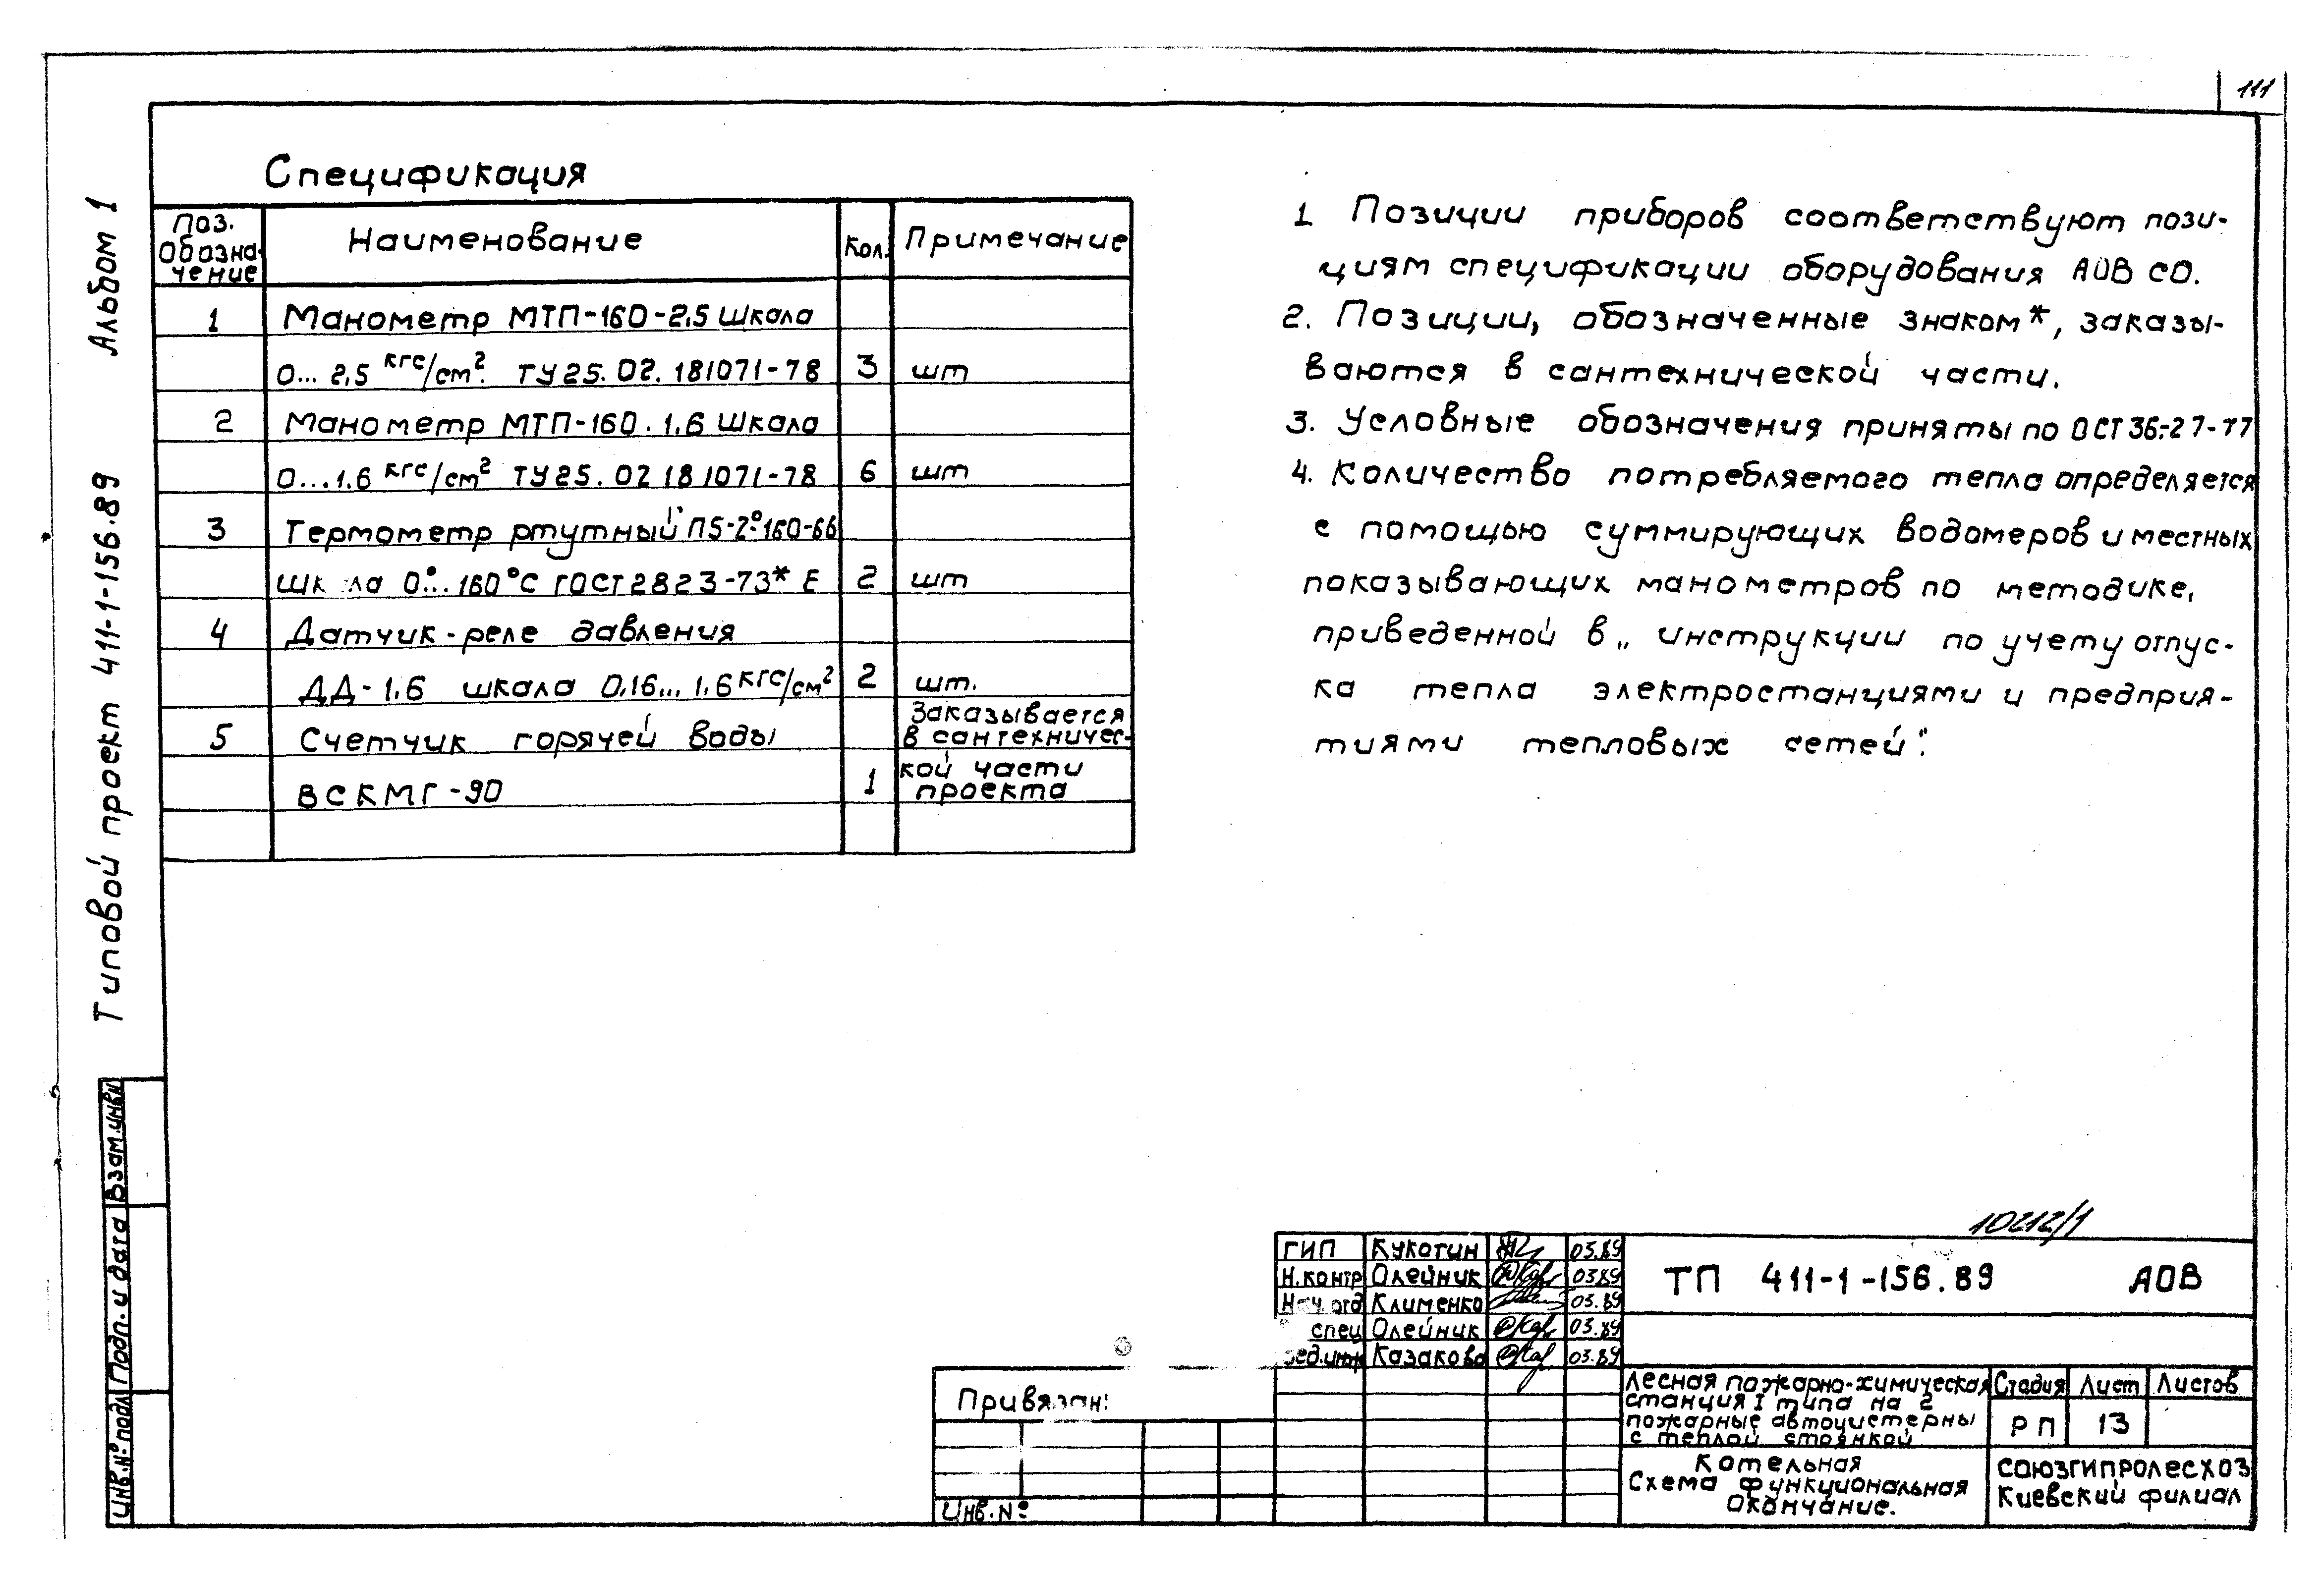 111
Альбом 1
Типовой проект 411-1-156.89
Спецификация
Поз. Обозна-чение Наименование Кол. Примечание
1 Манометр МТП-160-2,5 шкала
0...2,5 кгс/см². ТУ25.02.181071-78 3 шт
2 Манометр МТП-160.1,6 шкала
0...1,6 кгс/см² ТУ25.02 181071-78 6 шт
3 Термометр ртутный П5-2°-160-66
шк ла 0°...160°С ГОСТ 2823-73* Е 2 шт
4 Датчик-реле давления
ДД-1,6 шкала 0,16...1,6 кгс/см² 2 шт.
5 Счетчик горячей воды Заказывается в сантехничес-
ВСКМГ-90 1 кой части проекта
1 Позиции приборов соответствуют пози-
циям спецификации оборудования АОВ СО.
2. Позиции, обозначенные знаком*, заказы-
ваются в сантехнической части.
3. Условные обозначения приняты по ОСТ 36-27-77
4. Количество потребляемого тепла определяется
с помощью суммирующих водомеров и местных
показывающих манометров по методике,
приведенной в „ инструкции по учету отпус-
ка тепла электростанциями и предприя-
тиями тепловых сетей".
Взам.инв.N
Подп. и дата
Инв.№ подл
10212/1
ГИП Кукотин 03.89
Н.контр Олейник 03.89
Нач.отд Клименко 03.89
спец Олейник 03.89
вед.инж Казакова 03.89
ТП 411-1-156.89 АОВ
Привязан:
Инв.№
Лесная пожарно-химическая
станция I типа на 2
пожарные автоцистерны
с теплой стоянкой
Стадия Лист Листов
РП 13
Котельная
Схема функциональная
Окончание.
Союзгипролесхоз
Киевский филиал